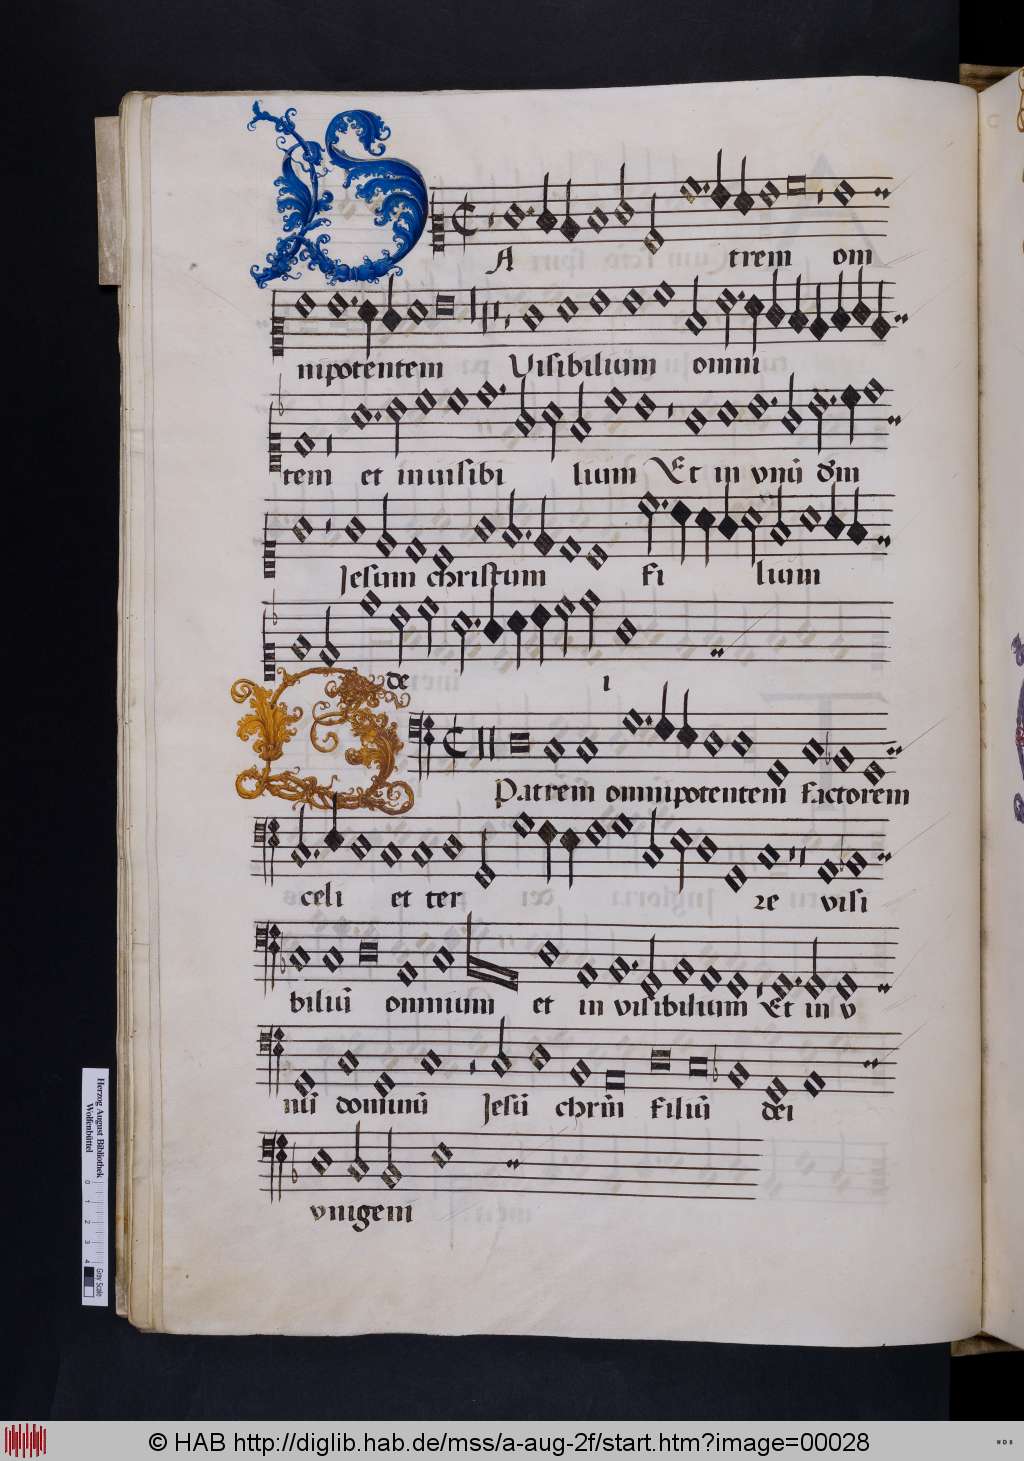 PA trem om
nipotentem Visibilium omni
tem et inuisibi lium Et in vnū dm̄
Jesum christum fi lium
de i
Patrem omnipotentem factorem
celi et ter re visi
biliū omnium et in visibilium Et in v
nū dominū Jesū chrm̄ filiū dei
vnigeni
Herzog August Bibliothek
Wolfenbüttel
0 1 2 3 4 Grey Scale
© HAB http://diglib.hab.de/mss/a-aug-2f/start.htm?image=00028
WDB